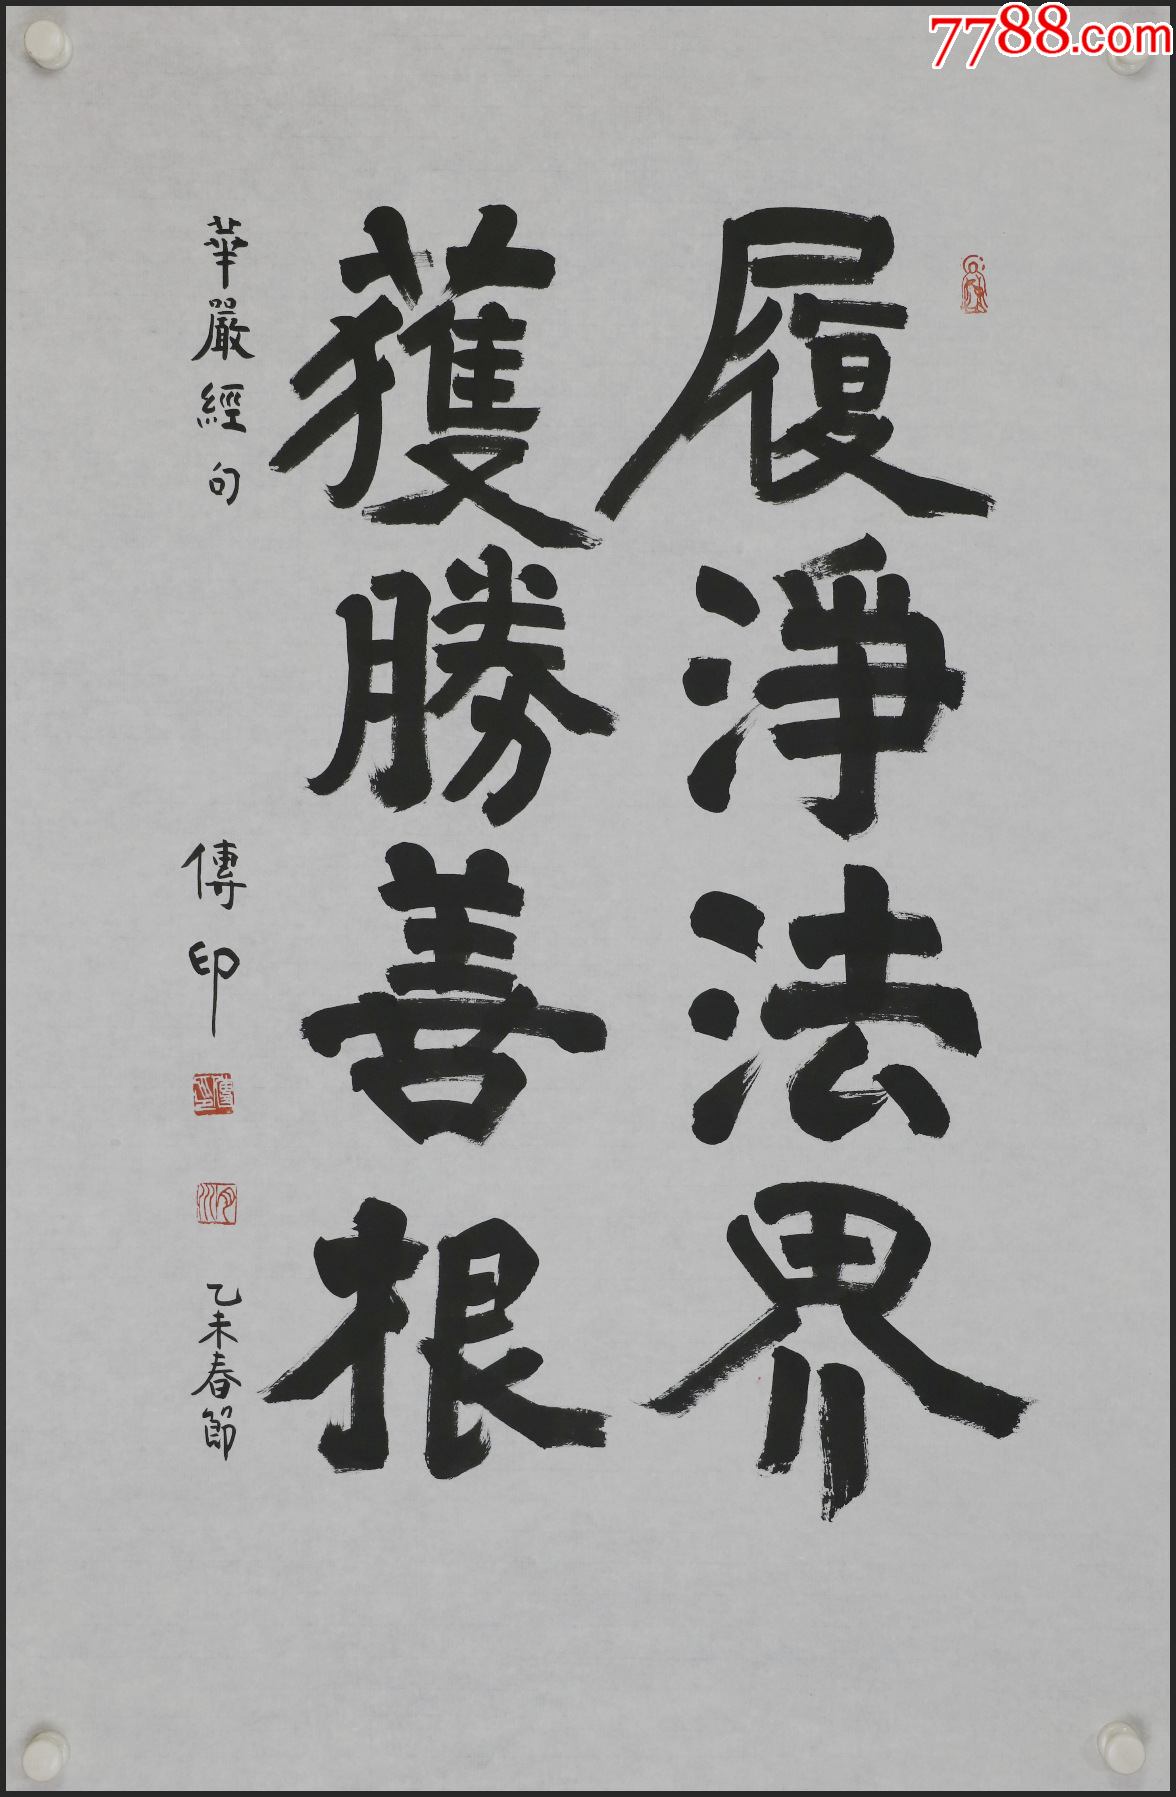 7788.com
履淨法界
獲勝善根
華嚴經句
傳印
乙未春節